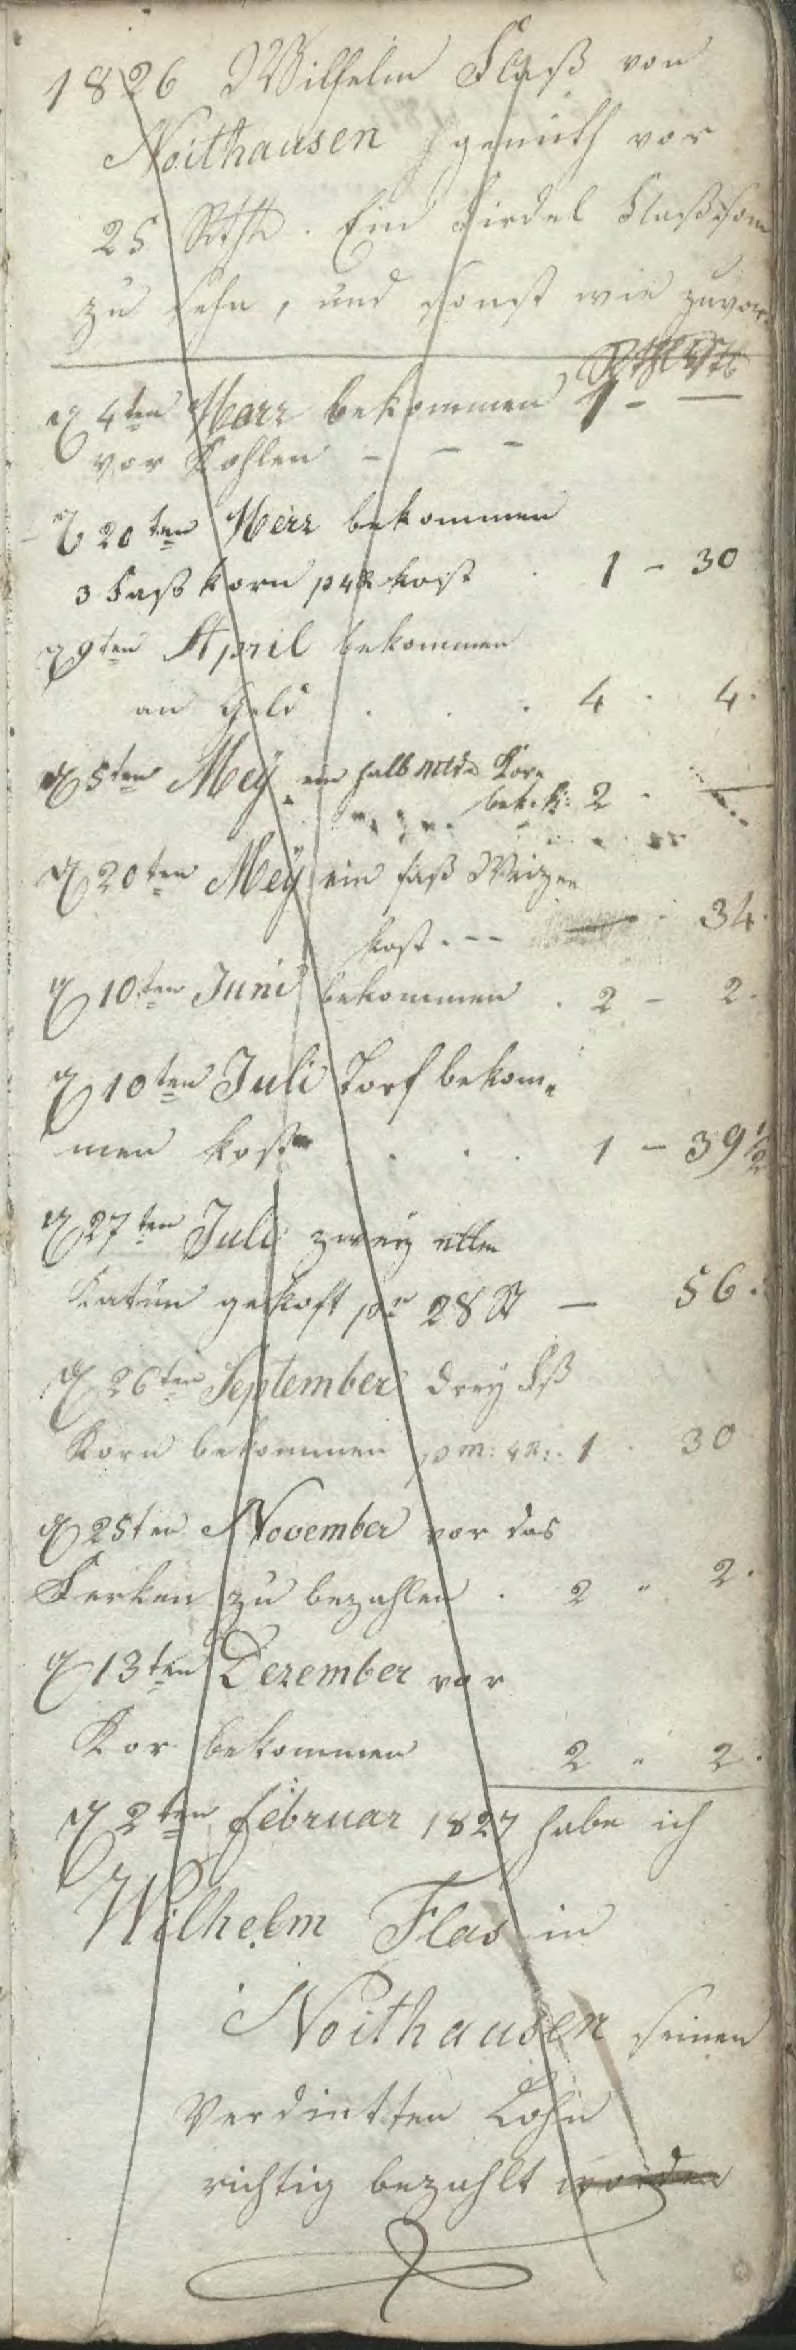 1826 Wilhelm Flaß von
Noithausen gemieth vor
25 Rthlr. Ein Virdel Flaßsom
zu sehn, und sonst wie zuvor.
4ten Merz bekommen 1 - —
vor Kohlen - - -
20ten Merz bekommen
3 Faß korn kost 1 - 30
9ten April bekommen
an Geld . . . 4 . 4.
5ten Meÿ ein halb Mldr Korn
bek. 2 . —
20ten Meÿ ein faß Weizen
kost . - - — . 34.
10ten Juni bekommen . 2 - 2.
10ten Juli Torf bekom-
men kost . . . 1 - 39 1/2
27ten Juli zweÿ ellen
Katun gekoft pr 28 St — 56.
26ten September dreÿ Fß
Korn bekommen 1 . 30
25ten November vor das
Ferken zu bezahlen . 2 " 2.
13ten Dezember vor
Kor bekommen 2 " 2.
2ten februar 1827 habe ich
Wilhelm Flas in
Noithausen seinen
Verdintten Lohn
richtig bezahlt worden